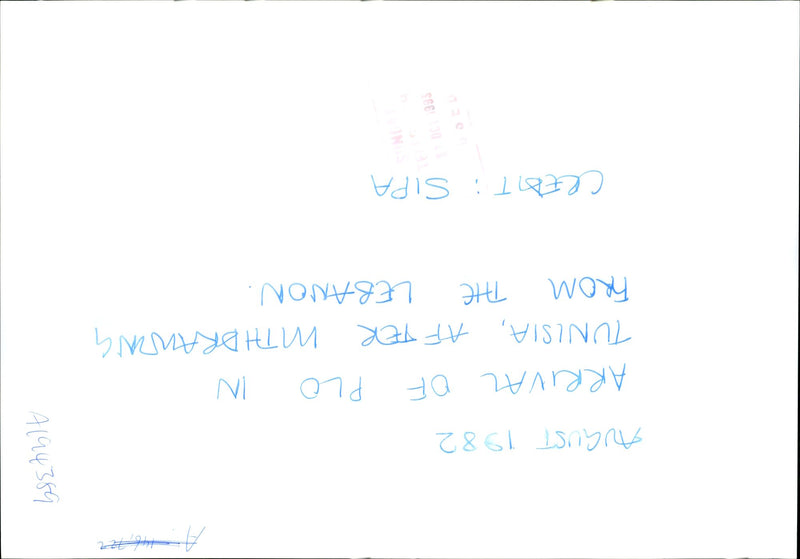 AUGUST 1982
ARRIVAL OF PLO IN
TUNISIA, AFTER WITHDRAWING
FROM THE LEBANON.
CREDIT: SIPA
27 OCT 1982
A 146,722
A1944359